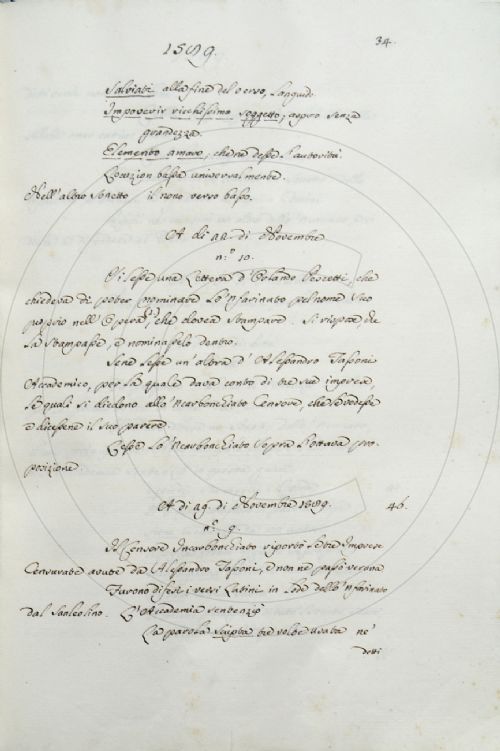 34.
1589.
Salviati alla fine del verso, languido
Impoverir ricchissimo soggetto, aspro senza
grandezza.
Elemento amaro, che ne desse l'autorità.
Locuzion bassa universalmente.
Nell'altro Sonetto il nono verso basso.
A dì 22. di Novembre
n.º 10.
Si lesse una Lettera d'Orlando Pescetti, che
chiedeva di poter nominare lo 'nfarinato pel nome suo
proprio nell'Opera, che doveva stampare. Si rispose, che
la stampasse, e nominasselo dentro.
Sene lesse un'altra d'Alessandro Tassoni
Accademico, per la quale dava conto di tre sue imprese,
le quali si diedono allo 'ncarbonchiato Censore, che le vedesse
e dicessene il suo parere.
Lesse lo 'ncarbonchiato sopra l'ottava pro-
posizione
A dì 29. di Novembre 1589. 46.
n.º 9.
Il Censore Incarbonchiato riportò le tre Imprese
Censurate avute da Alessandro Tassoni, e non ne passò veruna
Furono difesi i versi Latini in lode dello 'nfarinato
dal Sanleolino. L'Accademia sentenziò
La parola scripta tre volte usata ne'
detti